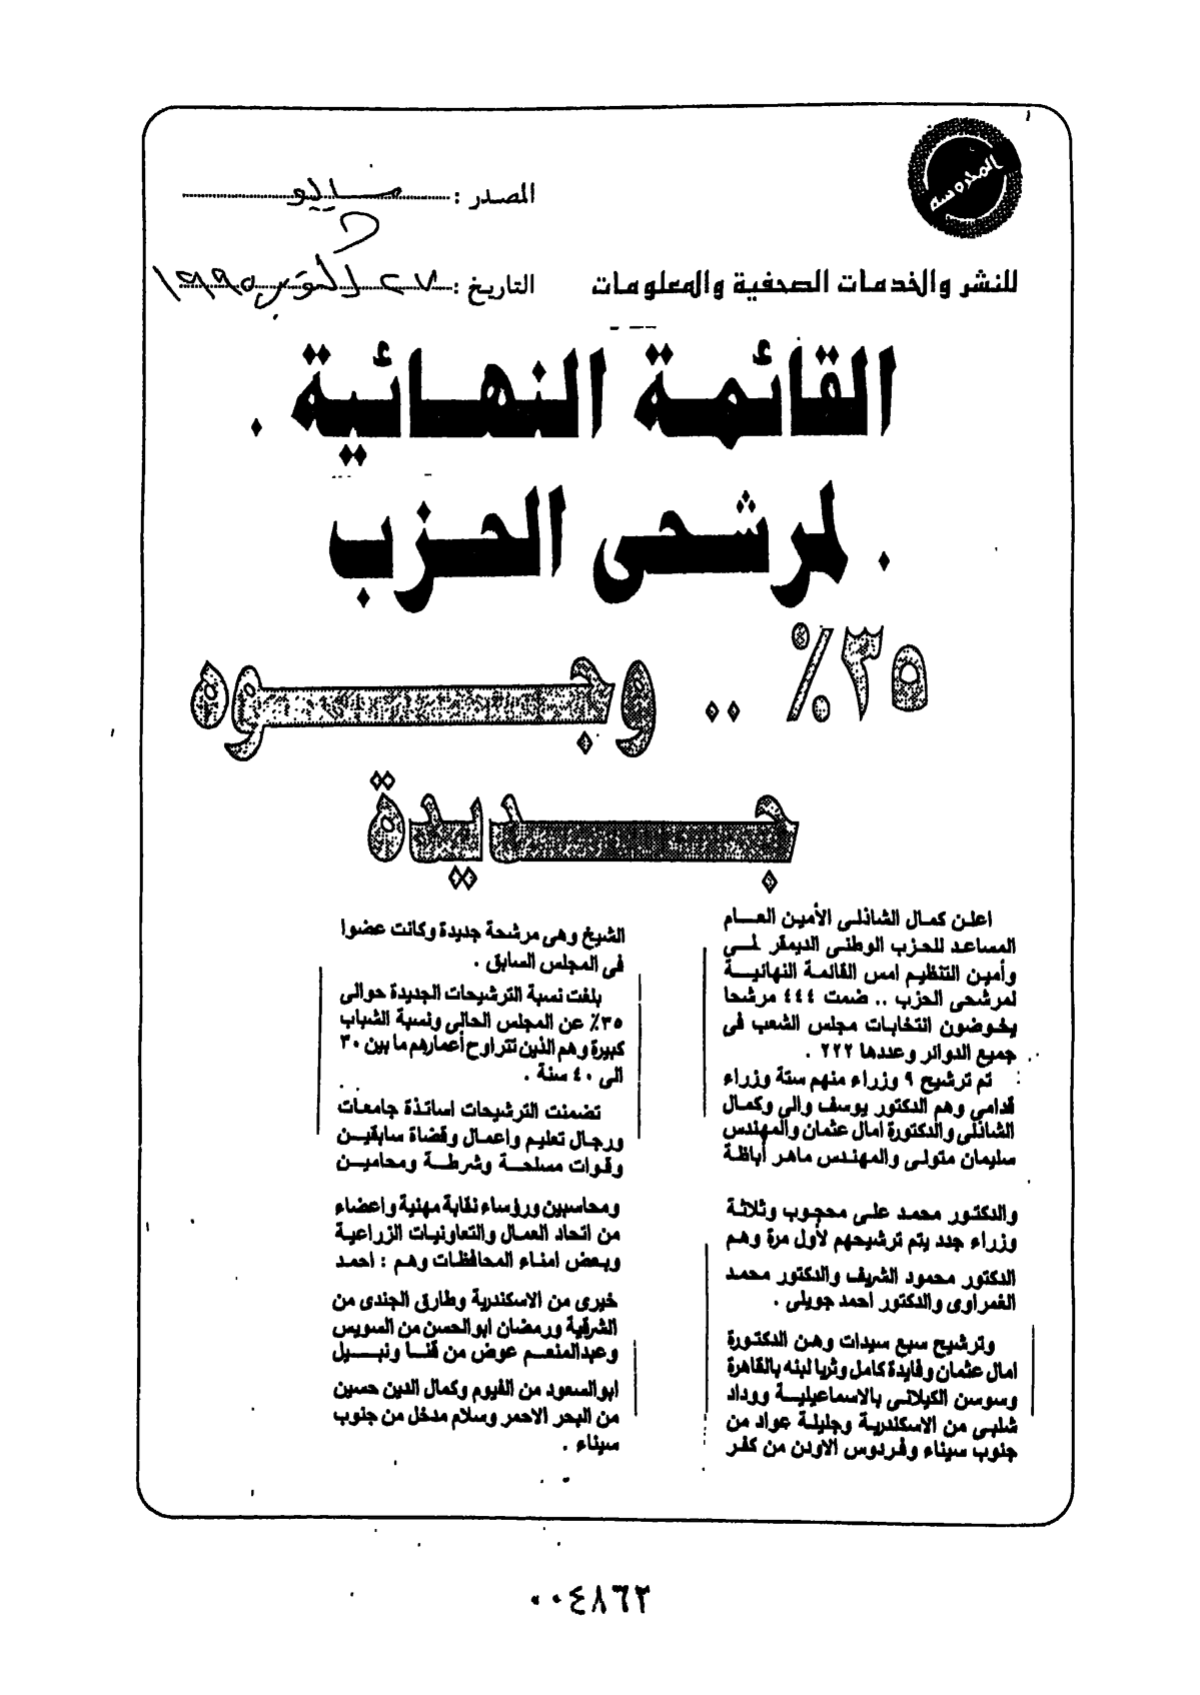 المحروسة
المصدر : مايو
التاريخ : ٢٧ اكتوبر ١٩٩٥
للنشر والخدمات الصحفية والمعلومات
القائمة النهائية
لمرشحى الحزب
٣٥٪ .. وجوه
جديدة
اعلن كمال الشاذلى الأمين العام
المساعد للحزب الوطنى الديمقر لمى
وأمين التنظيم امس القائمة النهائية
لمرشحى الحزب .. ضمت ٤٤٤ مرشحا
يخوضون انتخابات مجلس الشعب فى
جميع الدوائر وعددها ٢٢٢ .
تم ترشيح ٩ وزراء منهم ستة وزراء
قدامى وهم الدكتور يوسف والى وكمال
الشاذلى والدكتورة امال عثمان والمهندس
سليمان متولى والمهندس ماهر أباظة
والدكتور محمد على محجوب وثلاثة
وزراء جدد يتم ترشيحهم لأول مرة وهم
الدكتور محمود الشريف والدكتور محمد
الغمراوى والدكتور احمد جويلى .
وترشيح سبع سيدات وهن الدكتورة
امال عثمان وفايدة كامل وثريا لبنه بالقاهرة
وسوسن الكيلانى بالاسماعيلية ووداد
شلبى من الاسكندرية وجليلة عواد من
جنوب سيناء وفردوس الاودن من كفر
الشيخ وهى مرشحة جديدة وكانت عضوا
فى المجلس السابق .
بلغت نسبة الترشيحات الجديدة حوالى
٣٥٪ عن المجلس الحالى ونسبة الشباب
كبيرة وهم الذين تتراوح أعمارهم ما بين ٣٠
الى ٤٠ سنة .
تضمنت الترشيحات اساتذة جامعات
ورجال تعليم واعمال وقضاة سابقين
وقوات مسلحة وشرطة ومحامين
ومحاسبين ورؤساء نقابة مهنية واعضاء
من اتحاد العمال والتعاونيات الزراعية
وبعض امناء المحافظات وهم : احمد
خيرى من الاسكندرية وطارق الجندى من
الشرقية ورمضان ابوالحسن من السويس
وعبدالمنعم عوض من قنا ونبيل
ابوالسعود من الفيوم وكمال الدين حسين
من البحر الاحمر وسلام مدخل من جنوب
سيناء .
٠٠٤٨٦٢